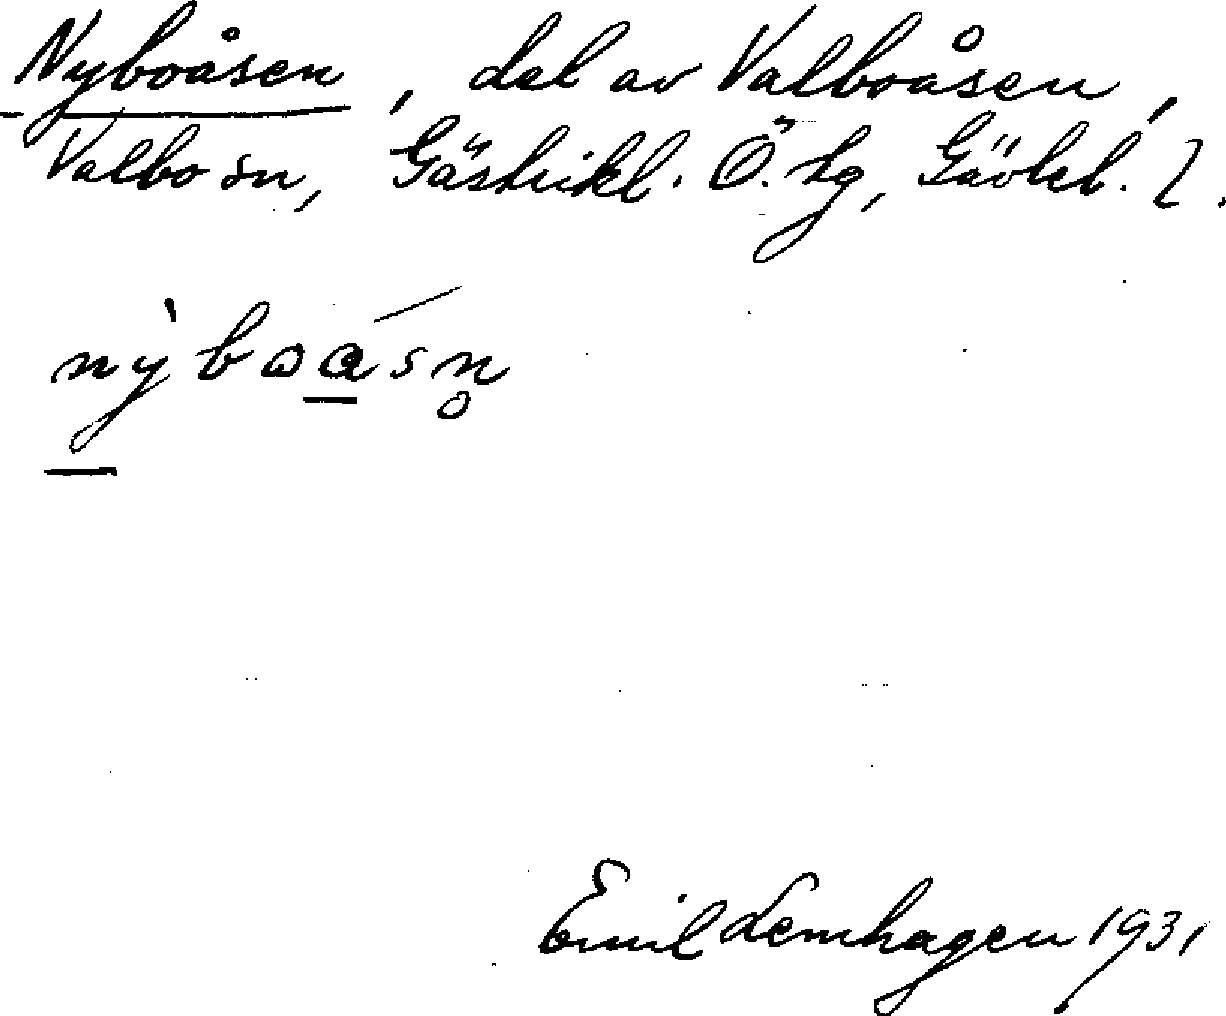 Nyboåsen, del av Valboåsen,
Valbo sn, Gästrikl. Ö. tg, Gävleb. l.
nỳboásn̥
Emil Lemhagen 1931